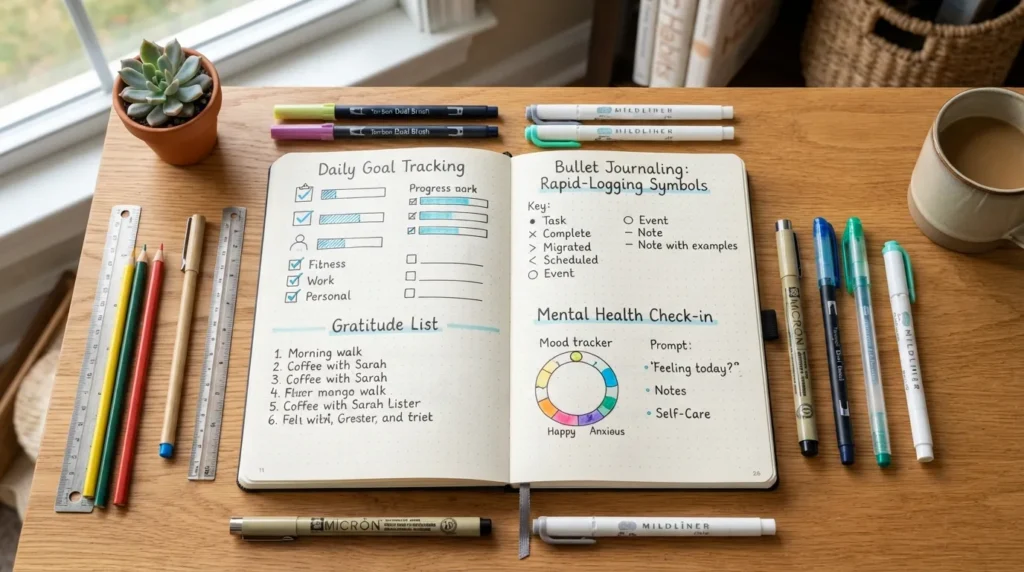 Daily Goal Tracking
Progress work
Fitness
Work
Personal
Gratitude List
1. Morning walk
2. Coffee with Sarah
3. Coffee with Sarah
4. Fluer mongo walk
5. Coffee with Sarah Lister
6. Felt with, Grester, and triet
11
Bullet Journaling:
Rapid-Logging Symbols
Key:
• Task
× Complete
> Migrated
< Scheduled
○ Event
○ Event
– Note
– Note with examples
Mental Health Check-in
Mood tracker
Happy Anxious
Prompt:
• "Feeling today?"
• Notes
• Self-Care
Dual Brush
Dual Brush
MILDLINER
MILDLINER
MICRON
MILDLINER
MICRON
MILDLINER